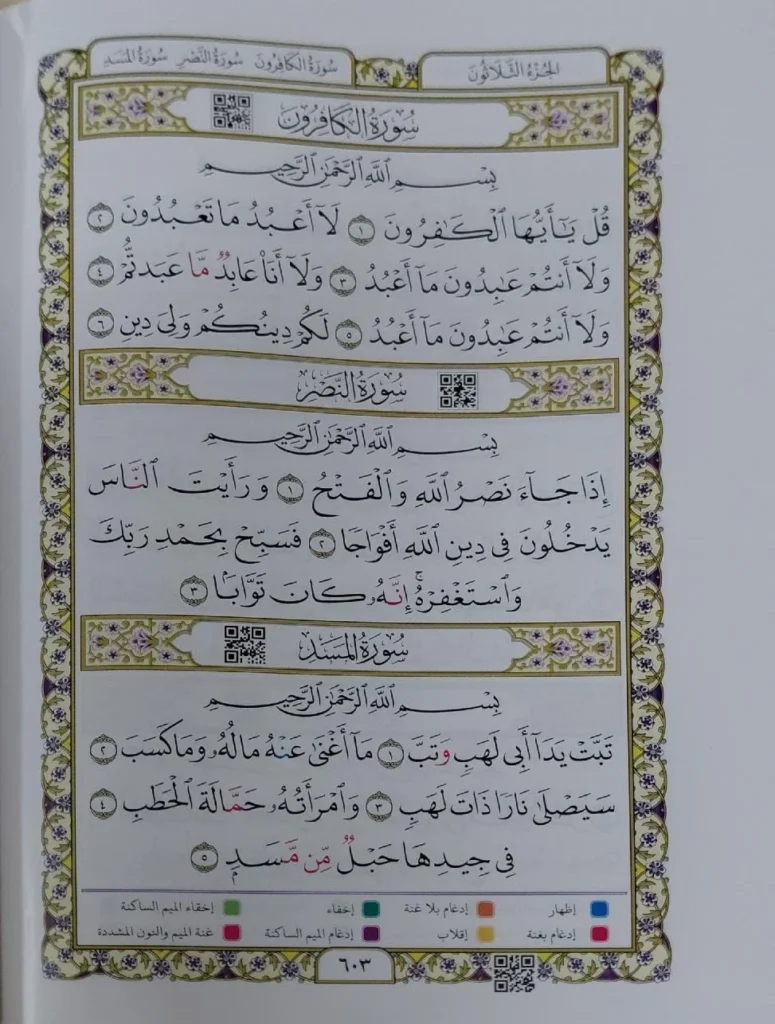 الجُزْءُ الثَّلَاثُونَ
سُورَةُ الكَافِرُونَ سُورَةُ النَّصْرِ سُورَةُ المَسَدِ
سُورَةُ الكَافِرُونَ
بِسْمِ ٱللَّهِ ٱلرَّحْمَٰنِ ٱلرَّحِيمِ
قُلْ يَٰٓأَيُّهَا ٱلْكَٰفِرُونَ ١ لَآ أَعْبُدُ مَا تَعْبُدُونَ ٢
وَلَآ أَنتُمْ عَٰبِدُونَ مَآ أَعْبُدُ ٣ وَلَآ أَنَا۠ عَابِدٌ مَّا عَبَدتُّمْ ٤
وَلَآ أَنتُمْ عَٰبِدُونَ مَآ أَعْبُدُ ٥ لَكُمْ دِينُكُمْ وَلِىَ دِينِ ٦
سُورَةُ النَّصْرِ
بِسْمِ ٱللَّهِ ٱلرَّحْمَٰنِ ٱلرَّحِيمِ
إِذَا جَآءَ نَصْرُ ٱللَّهِ وَٱلْفَتْحُ ١ وَرَأَيْتَ ٱلنَّاسَ
يَدْخُلُونَ فِى دِينِ ٱللَّهِ أَفْوَاجًا ٢ فَسَبِّحْ بِحَمْدِ رَبِّكَ
وَٱسْتَغْفِرْهُ ۚ إِنَّهُۥ كَانَ تَوَّابًۢا ٣
سُورَةُ المَسَدِ
بِسْمِ ٱللَّهِ ٱلرَّحْمَٰنِ ٱلرَّحِيمِ
تَبَّتْ يَدَآ أَبِى لَهَبٍ وَتَبَّ ١ مَآ أَغْنَىٰ عَنْهُ مَالُهُۥ وَمَا كَسَبَ ٢
سَيَصْلَىٰ نَارًا ذَاتَ لَهَبٍ ٣ وَٱمْرَأَتُهُۥ حَمَّالَةَ ٱلْحَطَبِ ٤
فِى جِيدِهَا حَبْلٌ مِّن مَّسَدٍۭ ٥
إظهار إدغام بلا غنة إخفاء إخفاء الميم الساكنة
إدغام بغنة إقلاب إدغام الميم الساكنة غنة الميم والنون المشددة
٦٠٣